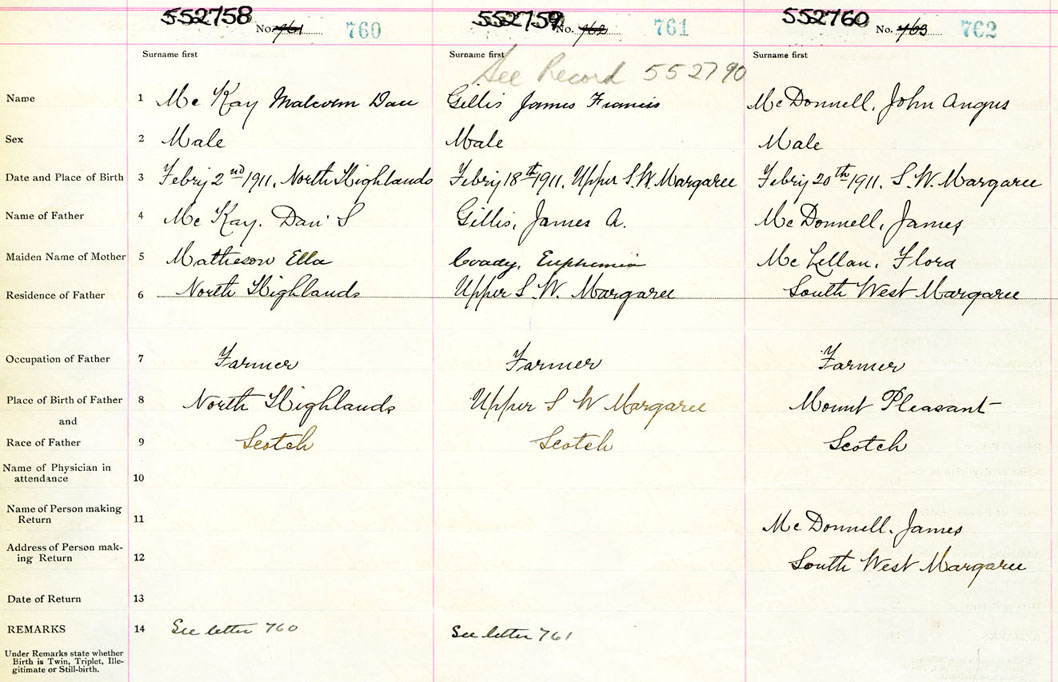 552758 552759 552760
No. 761 760 No. 762 761 No. 763 762
Surname first Surname first Surname first
See Record 552790
Name 1 Mc Kay Malcolm Dan Gillis James Francis McDonnell, John Angus
Sex 2 Male Male Male
Date and Place of Birth 3 Febry 2nd 1911, North Highlands Febry 18th 1911, Upper S.W. Margaree Febry 20th 1911, S.W. Margaree
Name of Father 4 Mc Kay. Dan' S Gillis, James A. McDonnell, James
Maiden Name of Mother 5 Matheson Ella Coady, Euphemia Mc Lellan, Flora
Residence of Father 6 North Highlands Upper S.W. Margaree South West Margaree
Occupation of Father 7 Farmer Farmer Farmer
Place of Birth of Father 8 North Highlands Upper S W Margaree Mount Pleasant
and
Race of Father 9 Scotch Scotch Scotch
Name of Physician in
attendance 10
Name of Person making
Return 11 McDonnell, James
Address of Person mak-
ing Return 12 South West Margaree
Date of Return 13
REMARKS 14 See letter 760 See letter 761
Under Remarks state whether
Birth is Twin, Triplet, Ille-
gitimate or Still-birth.